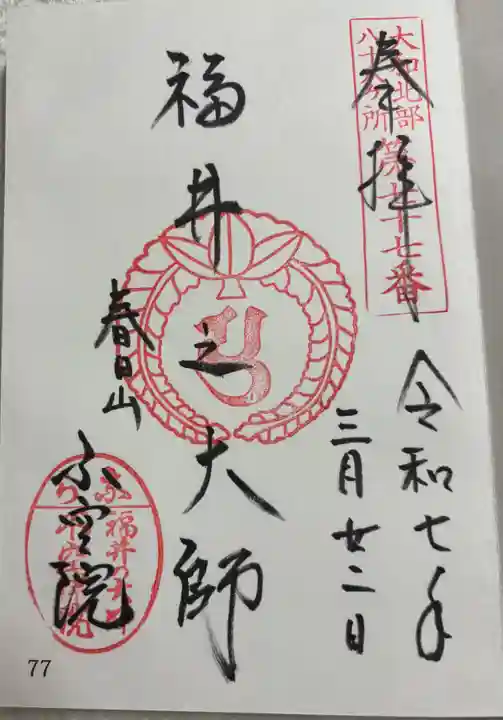 大和北部
八十八ヶ所 第七十七番
奉拝
令和七年
三月廿二日
福井之大師
春日山
不空院
77